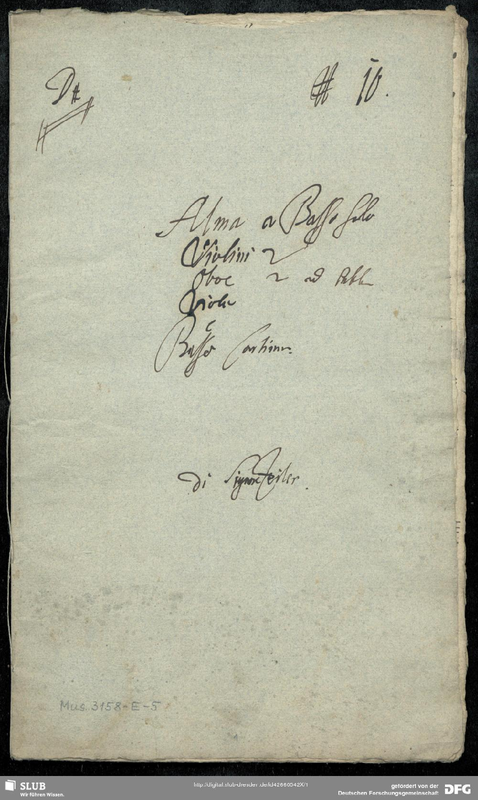 D#
# 10.
Alma a Basso Solo
Violini 2
Oboe 2 ad
Viola
e
Basso Continu.
di Sign Zeiler.
Mus. 3158-E-5
SLUB
Wir führen Wissen.
http://digital.slub-dresden.de/id426660042X/1
gefördert von der
Deutschen Forschungsgemeinschaft
DFG